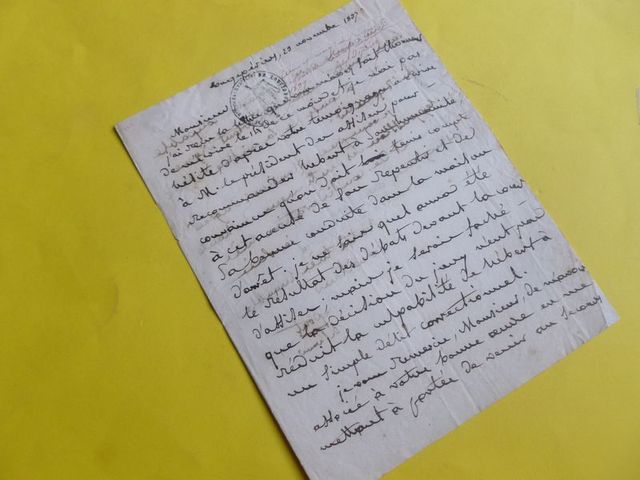 29 novembre
Monsieur
j'ai reçu la lettre que vous m'avez fait l'honneur
de m'écrire le 14 de ce mois et je n'ai pas
hésité d'après votre témoignage à écrire
à M. le président des assises pour
recommander hebert à son humanité
convaincu qu'on doit tenir compte
à cet accusé de son repentir et de
sa bonne conduite dans la maison
d'arrêt. je ne sais quel aura été
le résultat des débats devant la cour
d'assises. mais je serois fâché
que la décision du jury n'eut pas
réduit la culpabilité de hébert à
un simple délit correctionnel.
je vous remercie, Monsieur, de m'avoir
associé à votre bonne œuvre en me
mettant à portée de venir au secours